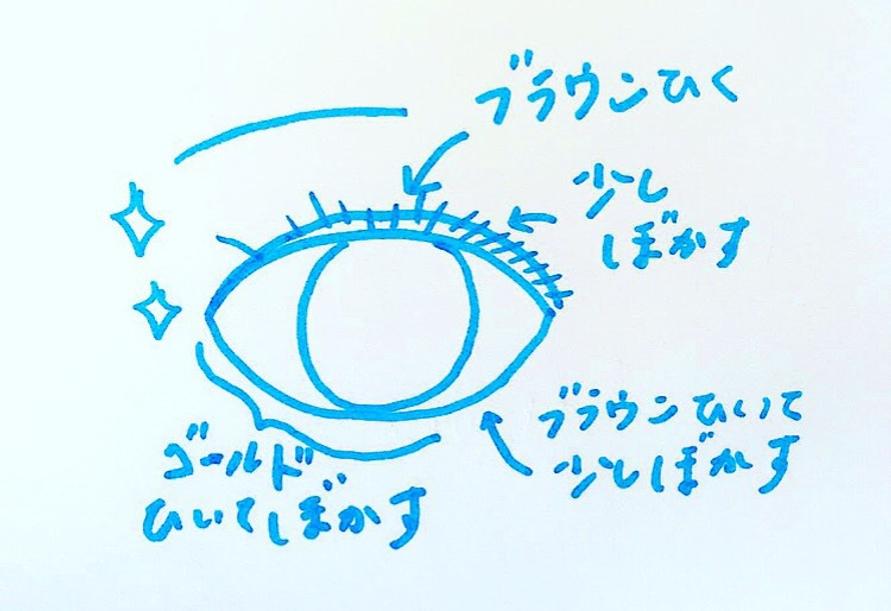 ブラウンひく
少し
ぼかす
ブラウンひいて
少しぼかす
ゴールド
ひいてぼかす